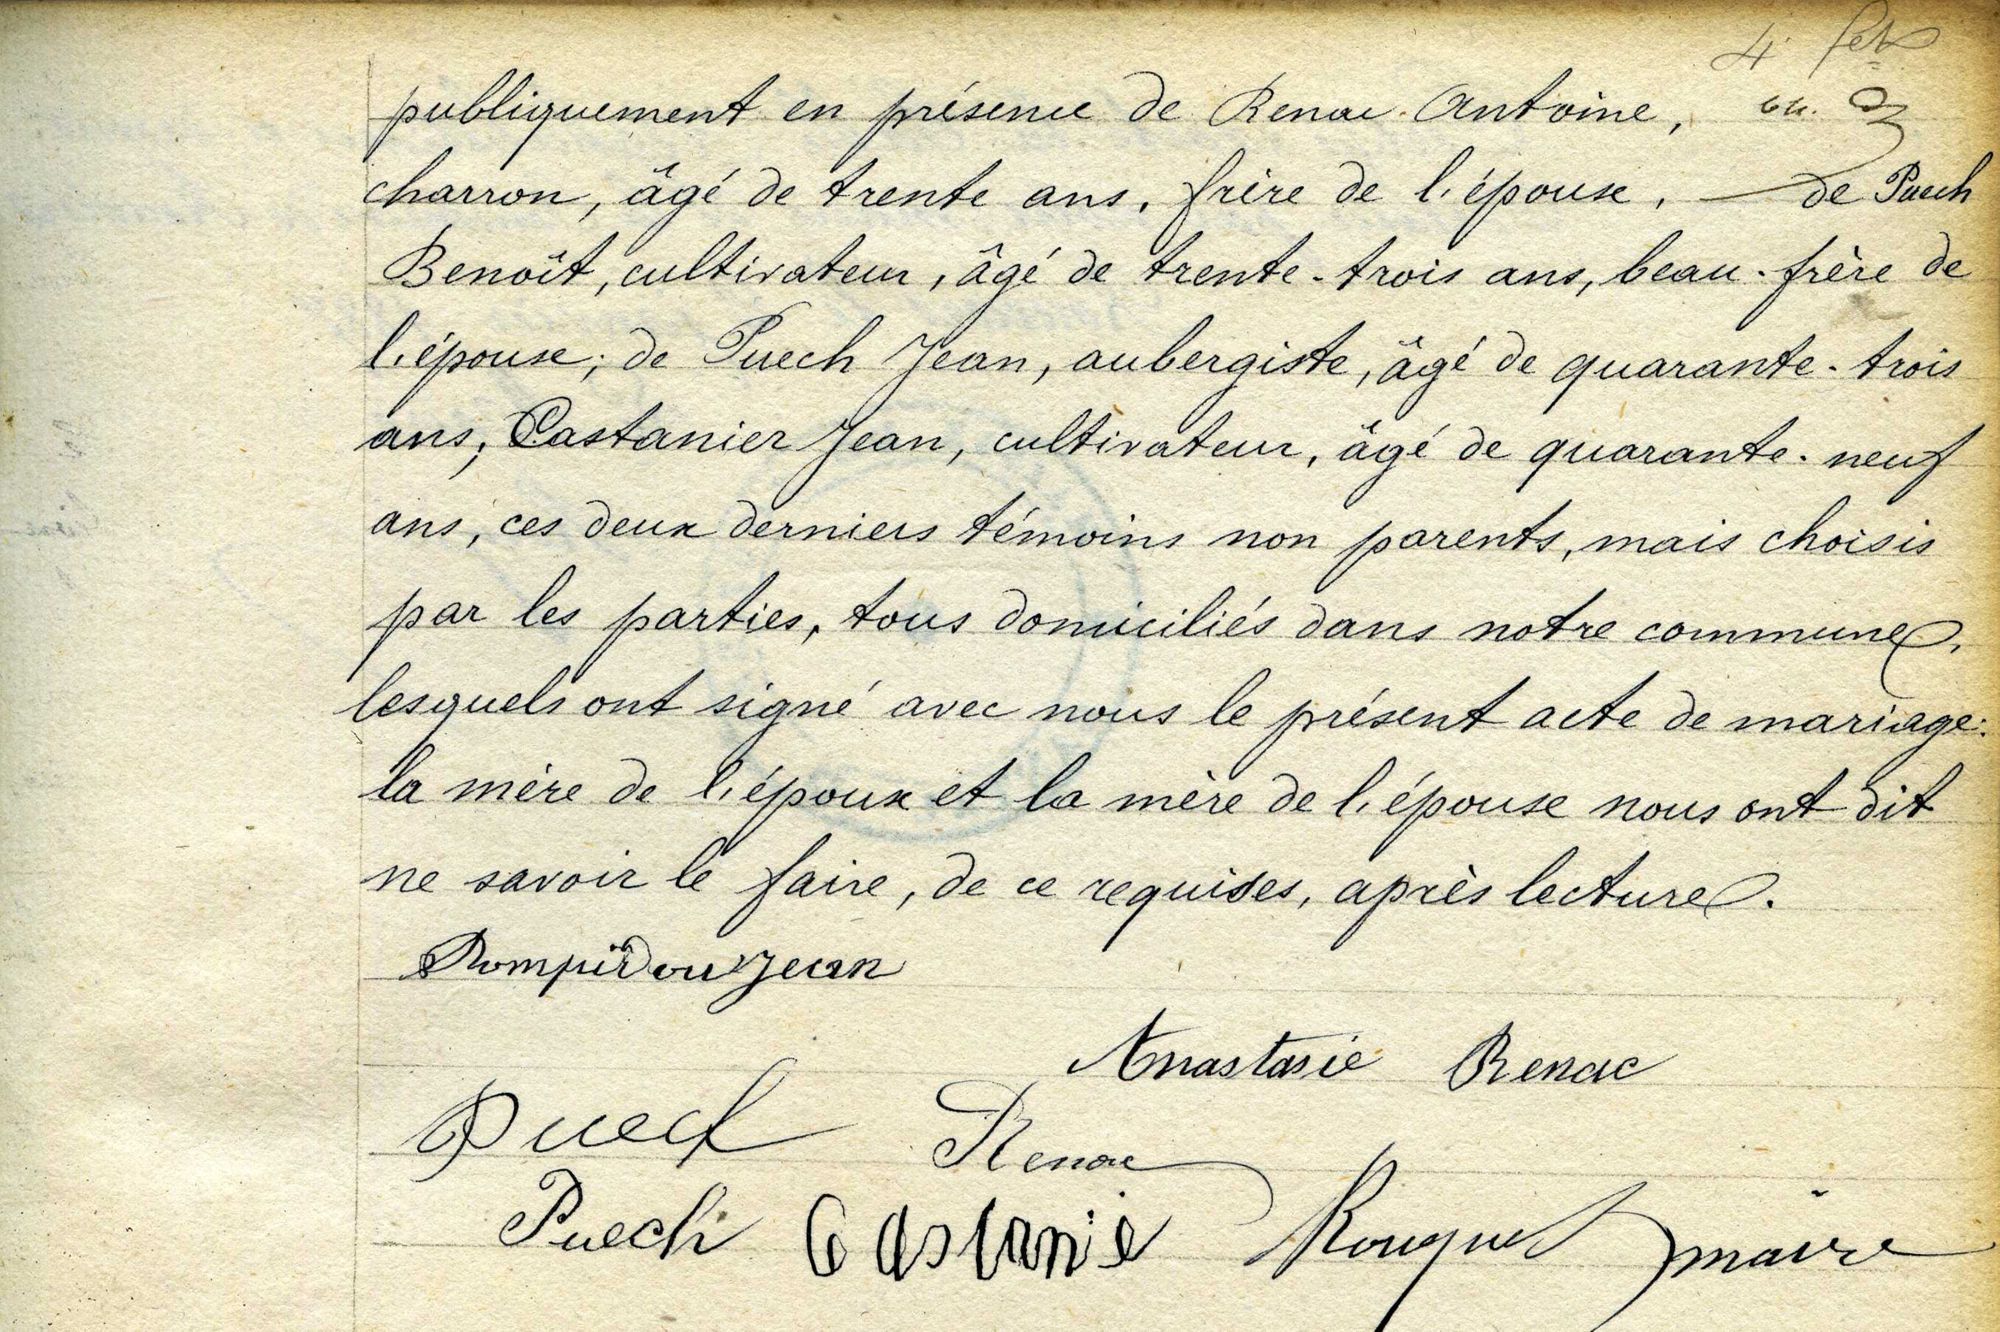 4
publiquement en présence de Renac Antoine,
charron, âgé de trente ans, frère de l'épouse, — de Puech
Benoît, cultivateur, âgé de trente-trois ans, beau-frère de
l'épouse; de Puech Jean, aubergiste, âgé de quarante-trois
ans; Castanier Jean, cultivateur, âgé de quarante-neuf
ans, ces deux derniers témoins non parents, mais choisis
par les parties, tous domiciliés dans notre commune,
lesquels ont signé avec nous le présent acte de mariage:
la mère de l'époux et la mère de l'épouse nous ont dit
ne savoir le faire, de ce requises, après lecture.
Pompidou Jean
Anastasie Renac
Puech Renac
Puech Castanié Rouquet maire